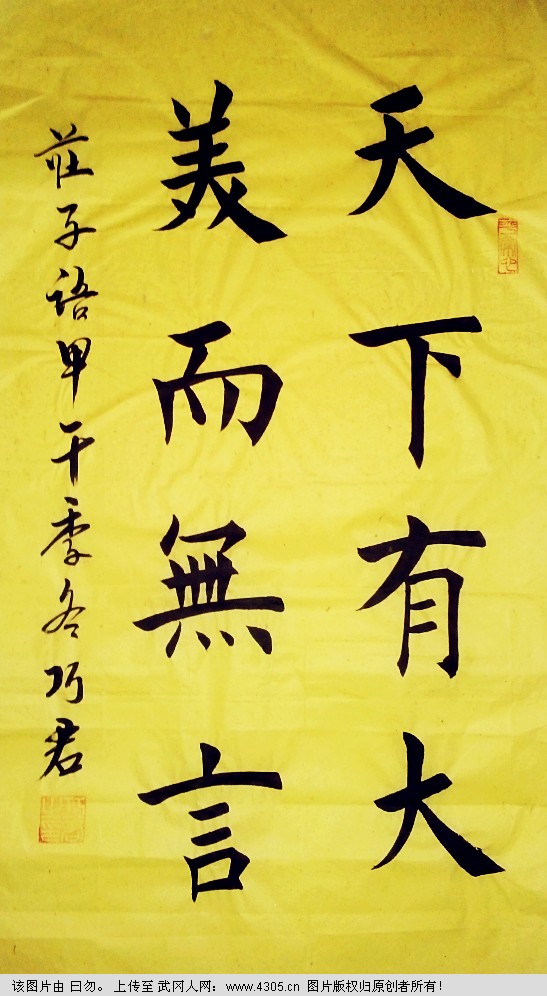 天下有大
美而無言
莊子語甲午季冬巧君
该图片由 曰勿。 上传至 武冈人网：www.4305.cn 图片版权归原创者所有！